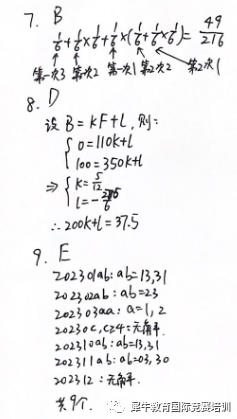 7. B
1/6+1/6×1/6+1/6×(1/6+1/6×1/6)=49/216
第一次3 第一次2 第一次1 第二次2 第二次1
8. D
设B=kF+l,则:
{0=110k+l
100=350k+l
⇒{k=5/12
l=-275/6
∴200k+l=37.5
9. E
202301ab:ab=13,31
202302ab:ab=23
202303aa:a=1,2
20230c,c≥4:无解
202310ab:ab=13,31
202311ab:ab=03,30
202312:无解
共9个.
犀牛教育国际竞赛培训